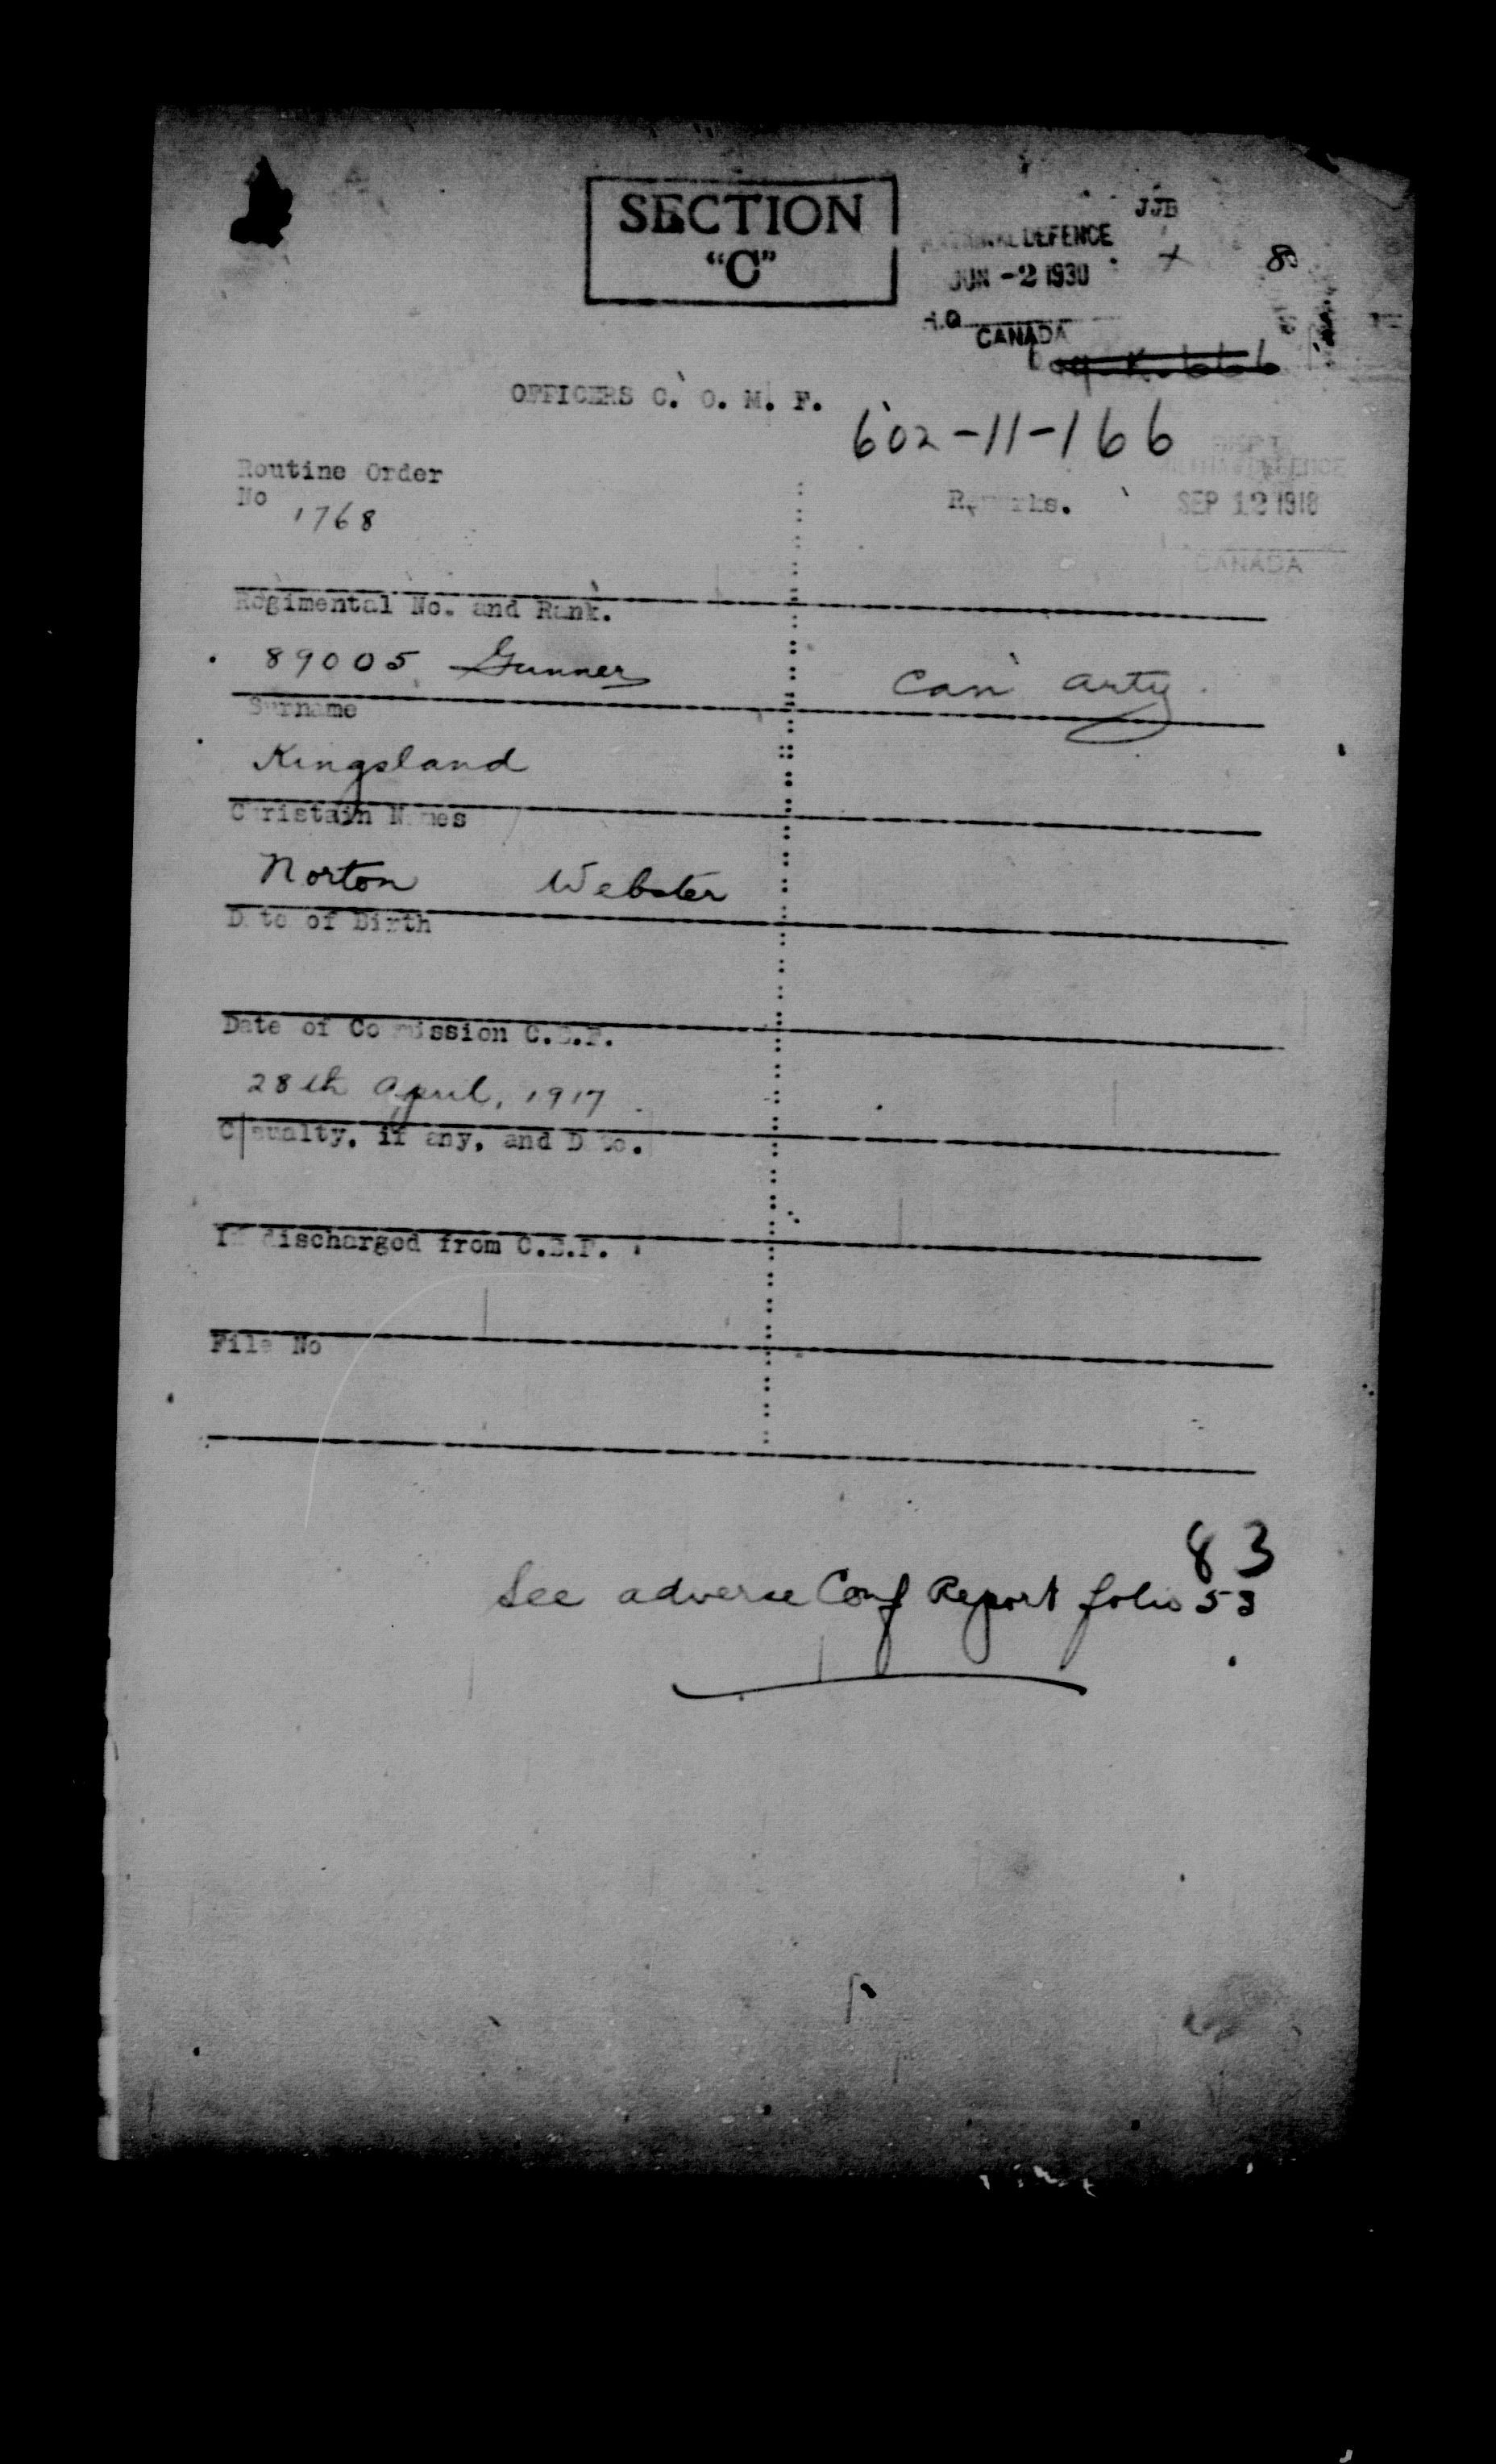 SECTION
"C"
JJB
NATIONAL DEFENCE
JUN -2 1930
H.Q.
CANADA
OFFICERS C. O. M. F.
602-11-166
Routine Order
No 1768
Remarks.
SEP 12 1918
CANADA
Regimental No. and Rank.
89005 Gunner Can Arty.
Surname
Kingsland
Christain Names
Norton Webster
Date of Birth
Date of Commission C.E.F.
28th April, 1917
Casualty, if any, and Date.
If discharged from C.E.F.
File No
83
See adverse Conf Report folio 53